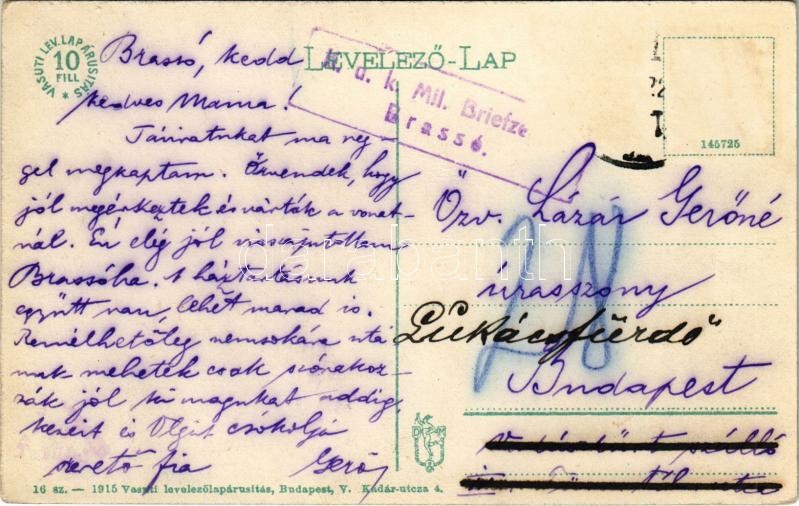 VASUTI LEV. LAPÁRUSITÁS *
10
FILL
LEVELEZŐ-LAP
k. d. k. Mil. Briefze
Brassó.
145725
Brassó, kedd
kedves Mama!
Táviratukat ma reg-
gel megkaptam. Örvendek, hogy
jól megérkeztek és várták a vonat-
nál. Én elég jól visszajutottam
Brassóba. A háztartásunk
együtt van, lehet marad is.
Remélhetőleg nemsokára utá
nuk mehetek csak szórakoz-
zák jól ki magukat addig,
kezeit és Olgát csókolja
szerető fia Gerő
Özv. Lázár Gerőné
úrasszony
Lukácsfürdő
Budapest
szálló
darabanth
16 sz. — 1915 Vasuti levelezőlapárusitás, Budapest, V. Kádár-utcza 4.